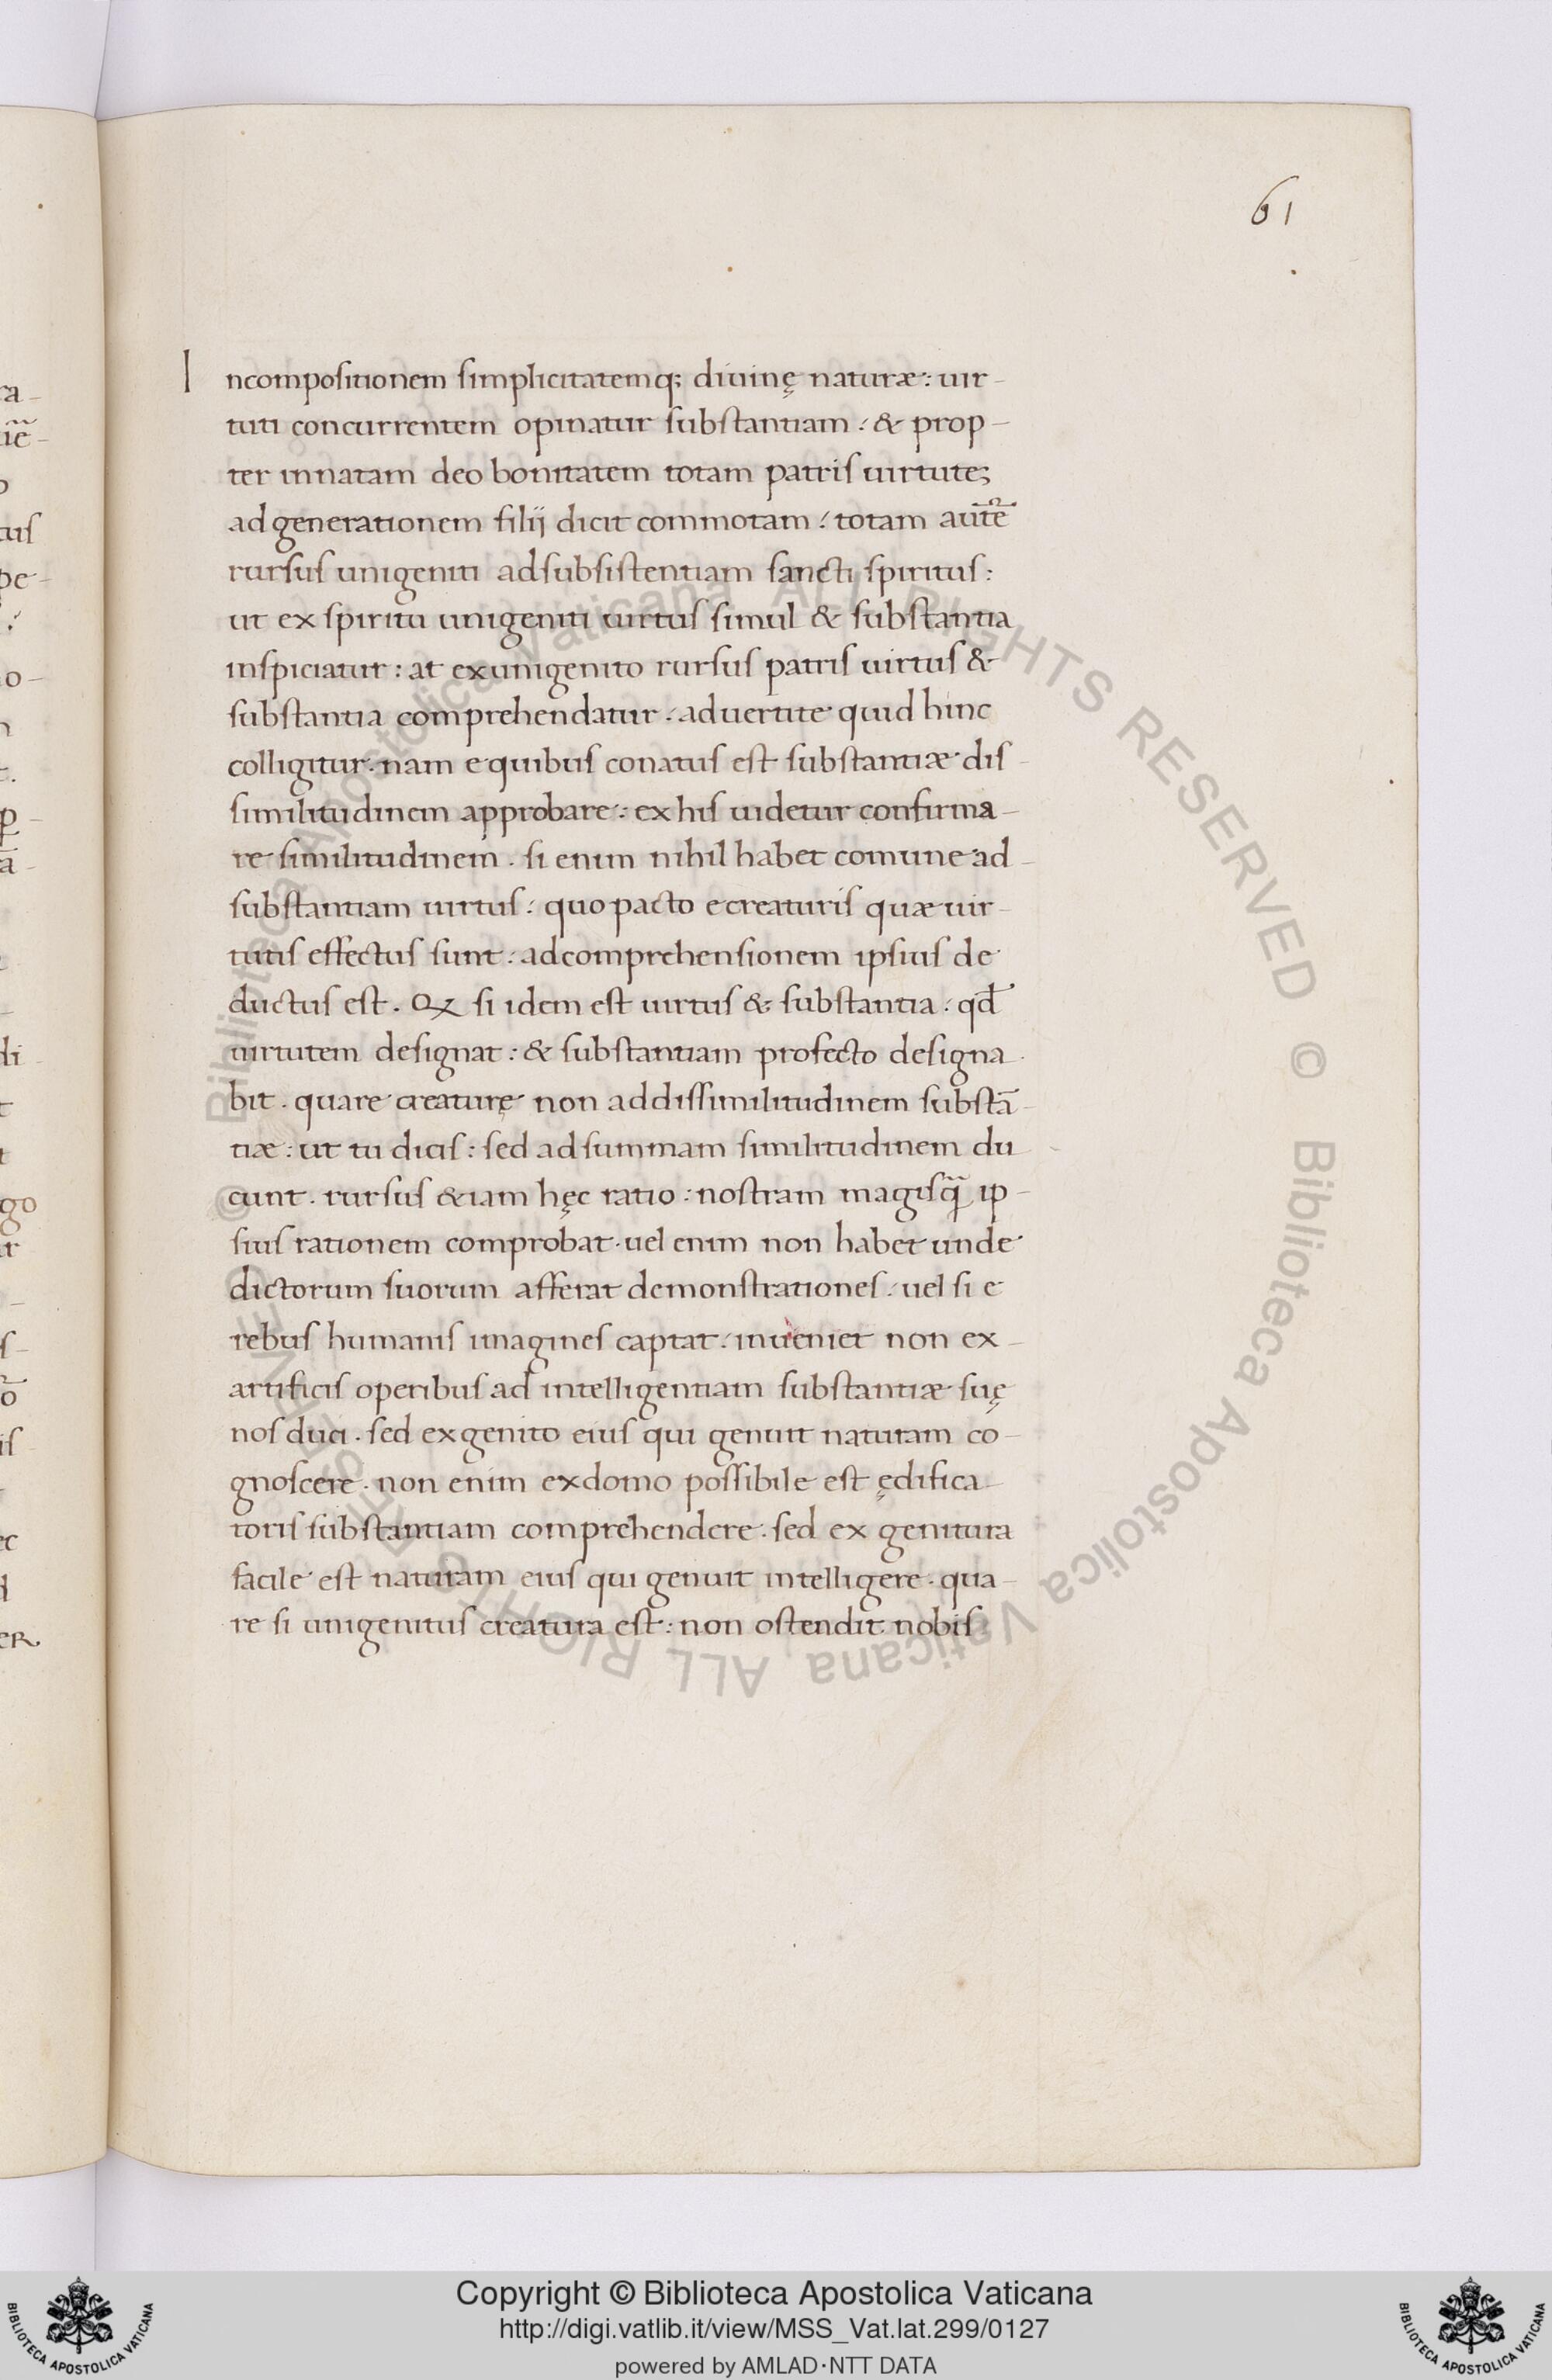 61
Incompositionem simplicitatemq; diuinę naturæ: uir-
tuti concurrentem opinatur substantiam: & prop-
ter innatam deo bonitatem totam patris uirtutẽ
ad generationem filij dicit commotam: totam autẽ
rursus unigeniti ad subsistentiam sancti spiritus:
ut ex spiritu unigeniti uirtus simul & substantia
inspiciatur: at ex unigenito rursus patris uirtus &
substantia comprehendatur: aduertite quid hinc
colligitur. nam e quibus conatus est substantiæ dis-
similitudinem approbare: ex his uidetur confirma-
re similitudinem. si enim nihil habet comune ad-
substantiam uirtus: quo pacto e creaturis quæ uir-
tutis effectus sunt: ad comprehensionem ipsius de
ductus est. Q̣ si idem est uirtus & substantia: qđ
uirtutem designat: & substantiam profecto designa-
bit. quare creaturę non ad dissimilitudinem substã-
tiæ: ut tu dicis: sed ad summam similitudinem du-
cunt. rursus &iam hęc ratio: nostram magisq̃ ip-
sius rationem comprobat. uel enim non habet unde
dictorum suorum afferat demonstrationes: uel si e
rebus humanis imagines captat: inueniet non ex-
artificis operibus ad intelligentiam substantiæ suę
nos duci. sed ex genito eius qui genuit naturam co-
gnoscere. non enim ex domo possibile est ędifica-
toris substantiam comprehendere. sed ex genitura
facile est naturam eius qui genuit intelligere. qua-
re si unigenitus creatura est: non ostendit nobis
© Biblioteca Apostolica Vaticana ALL RIGHTS RESERVED
© Biblioteca Apostolica Vaticana ALL RIGHTS RESERVED
Copyright © Biblioteca Apostolica Vaticana
http://digi.vatlib.it/view/MSS_Vat.lat.299/0127
powered by AMLAD·NTT DATA
BIBLIOTECA APOSTOLICA VATICANA
BIBLIOTECA APOSTOLICA VATICANA